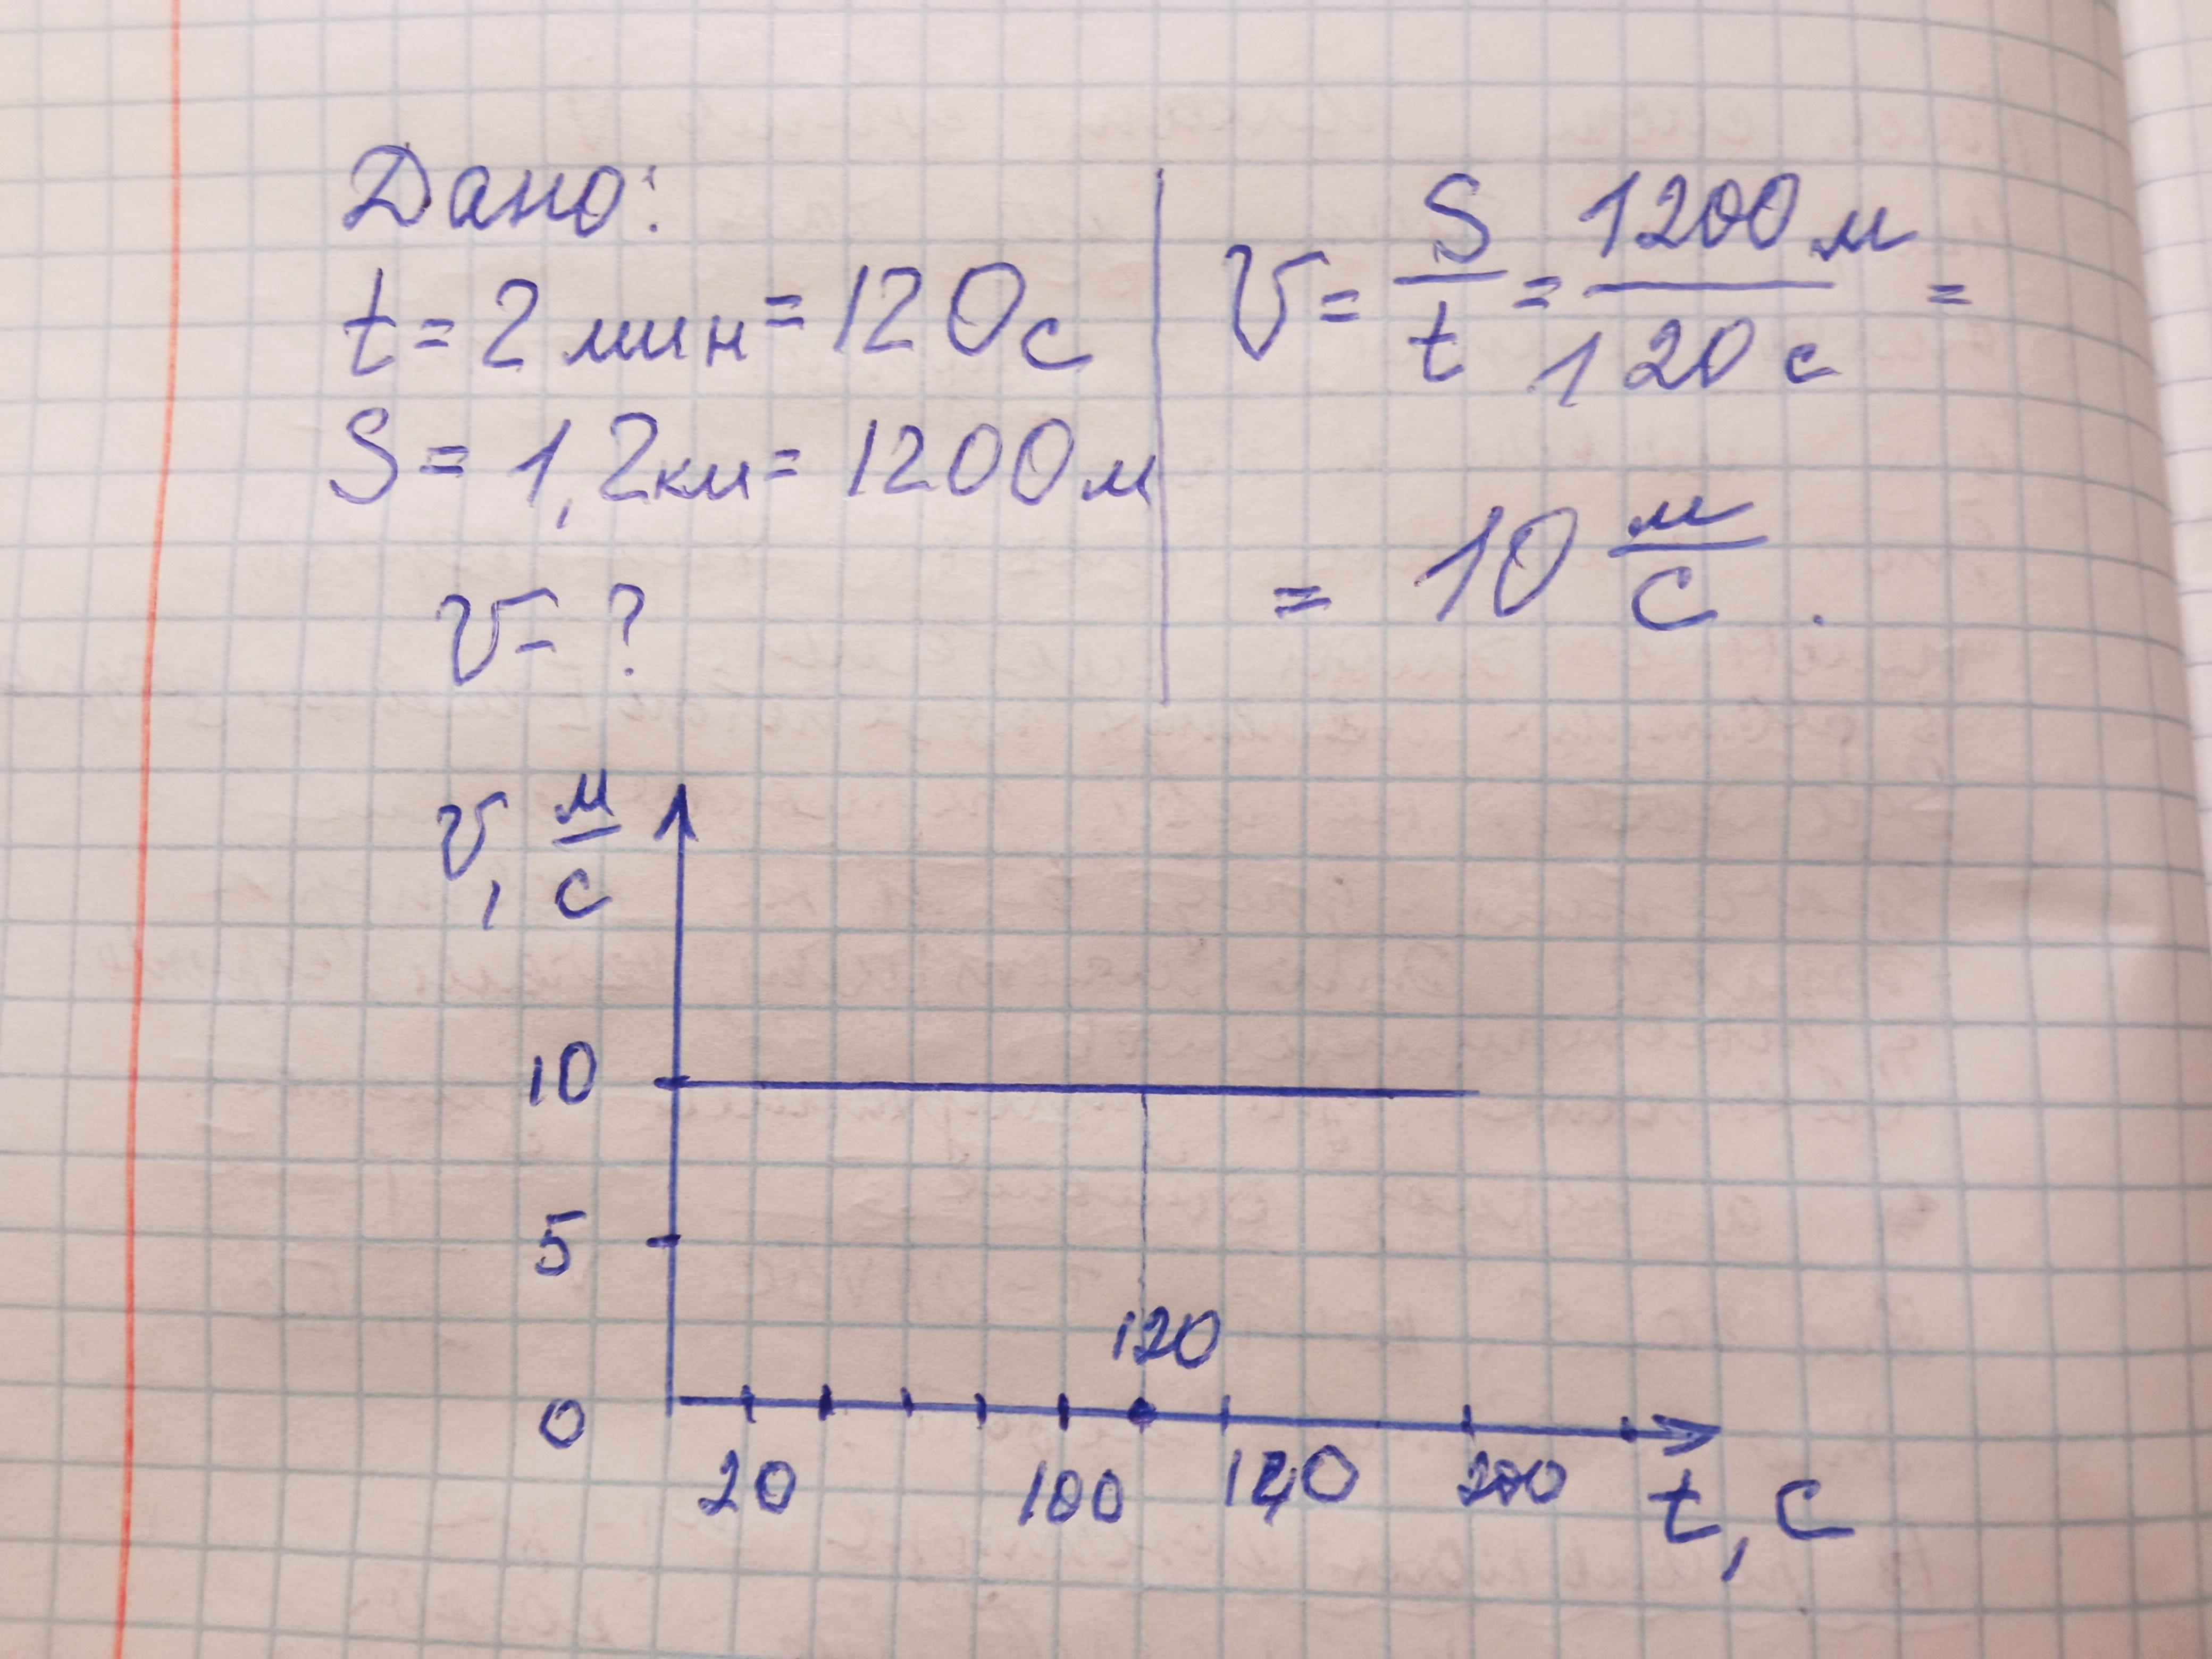 Дано:
t = 2 мин = 120 с
S = 1,2 км = 1200 м
v = ?
v = S/t = 1200 м/120 с =
= 10 м/с.
v, м/с
10
5
0
120
20 100 140 200
t, с